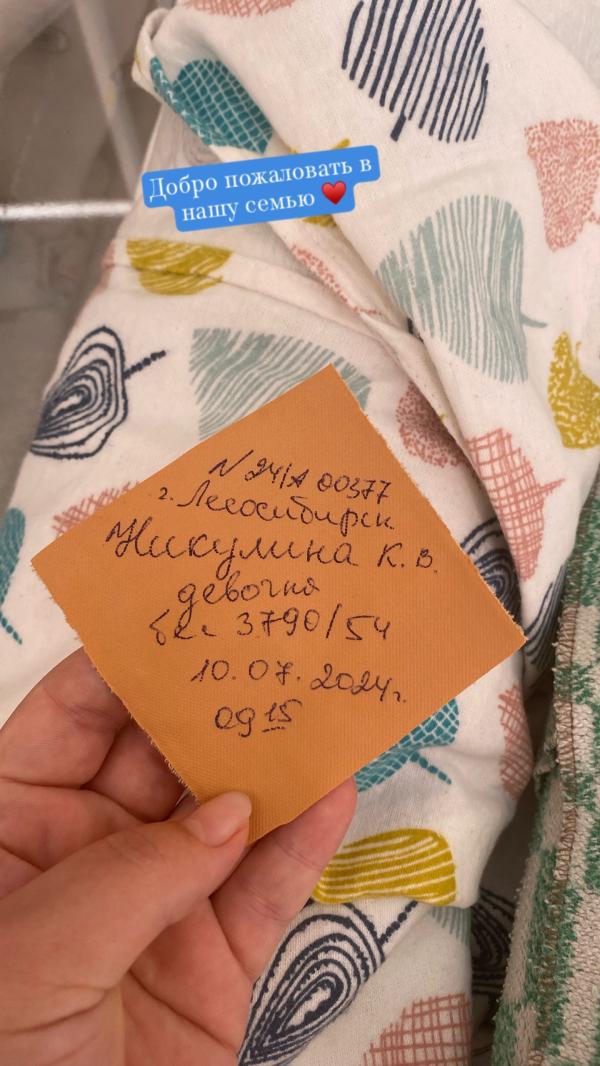 Добро пожаловать в
нашу семью ❤️
N 24/А 00377
г. Лесосибирск
Никулина К. В.
девочка
вес 3790/54
10.07.2024г.
09 15